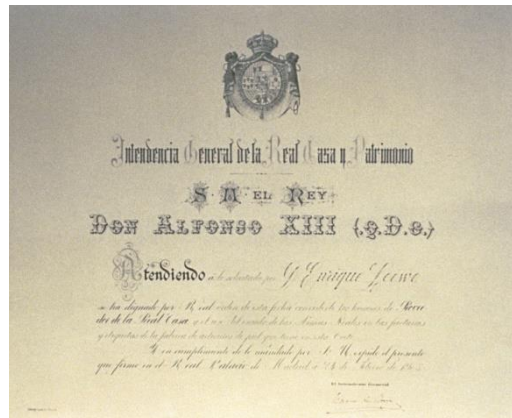 Intendencia General de la Real Casa y Patrimonio
S. M. EL REY
DON ALFONSO XIII (Q.D.G.)
Atendiendo a lo solicitado por D. Enrique Loewe
se ha dignado por Real orden de esta fecha concederle los honores de Provee
dor de la Real Casa y el uso del escudo de las Armas Reales en las facturas
y etiquetas de la fábrica de artículos de piel que tiene en esta Corte
Y en cumplimiento de lo mandado por S. M. expido el presente
que firmo en el Real Palacio de Madrid a de de
El Intendente General